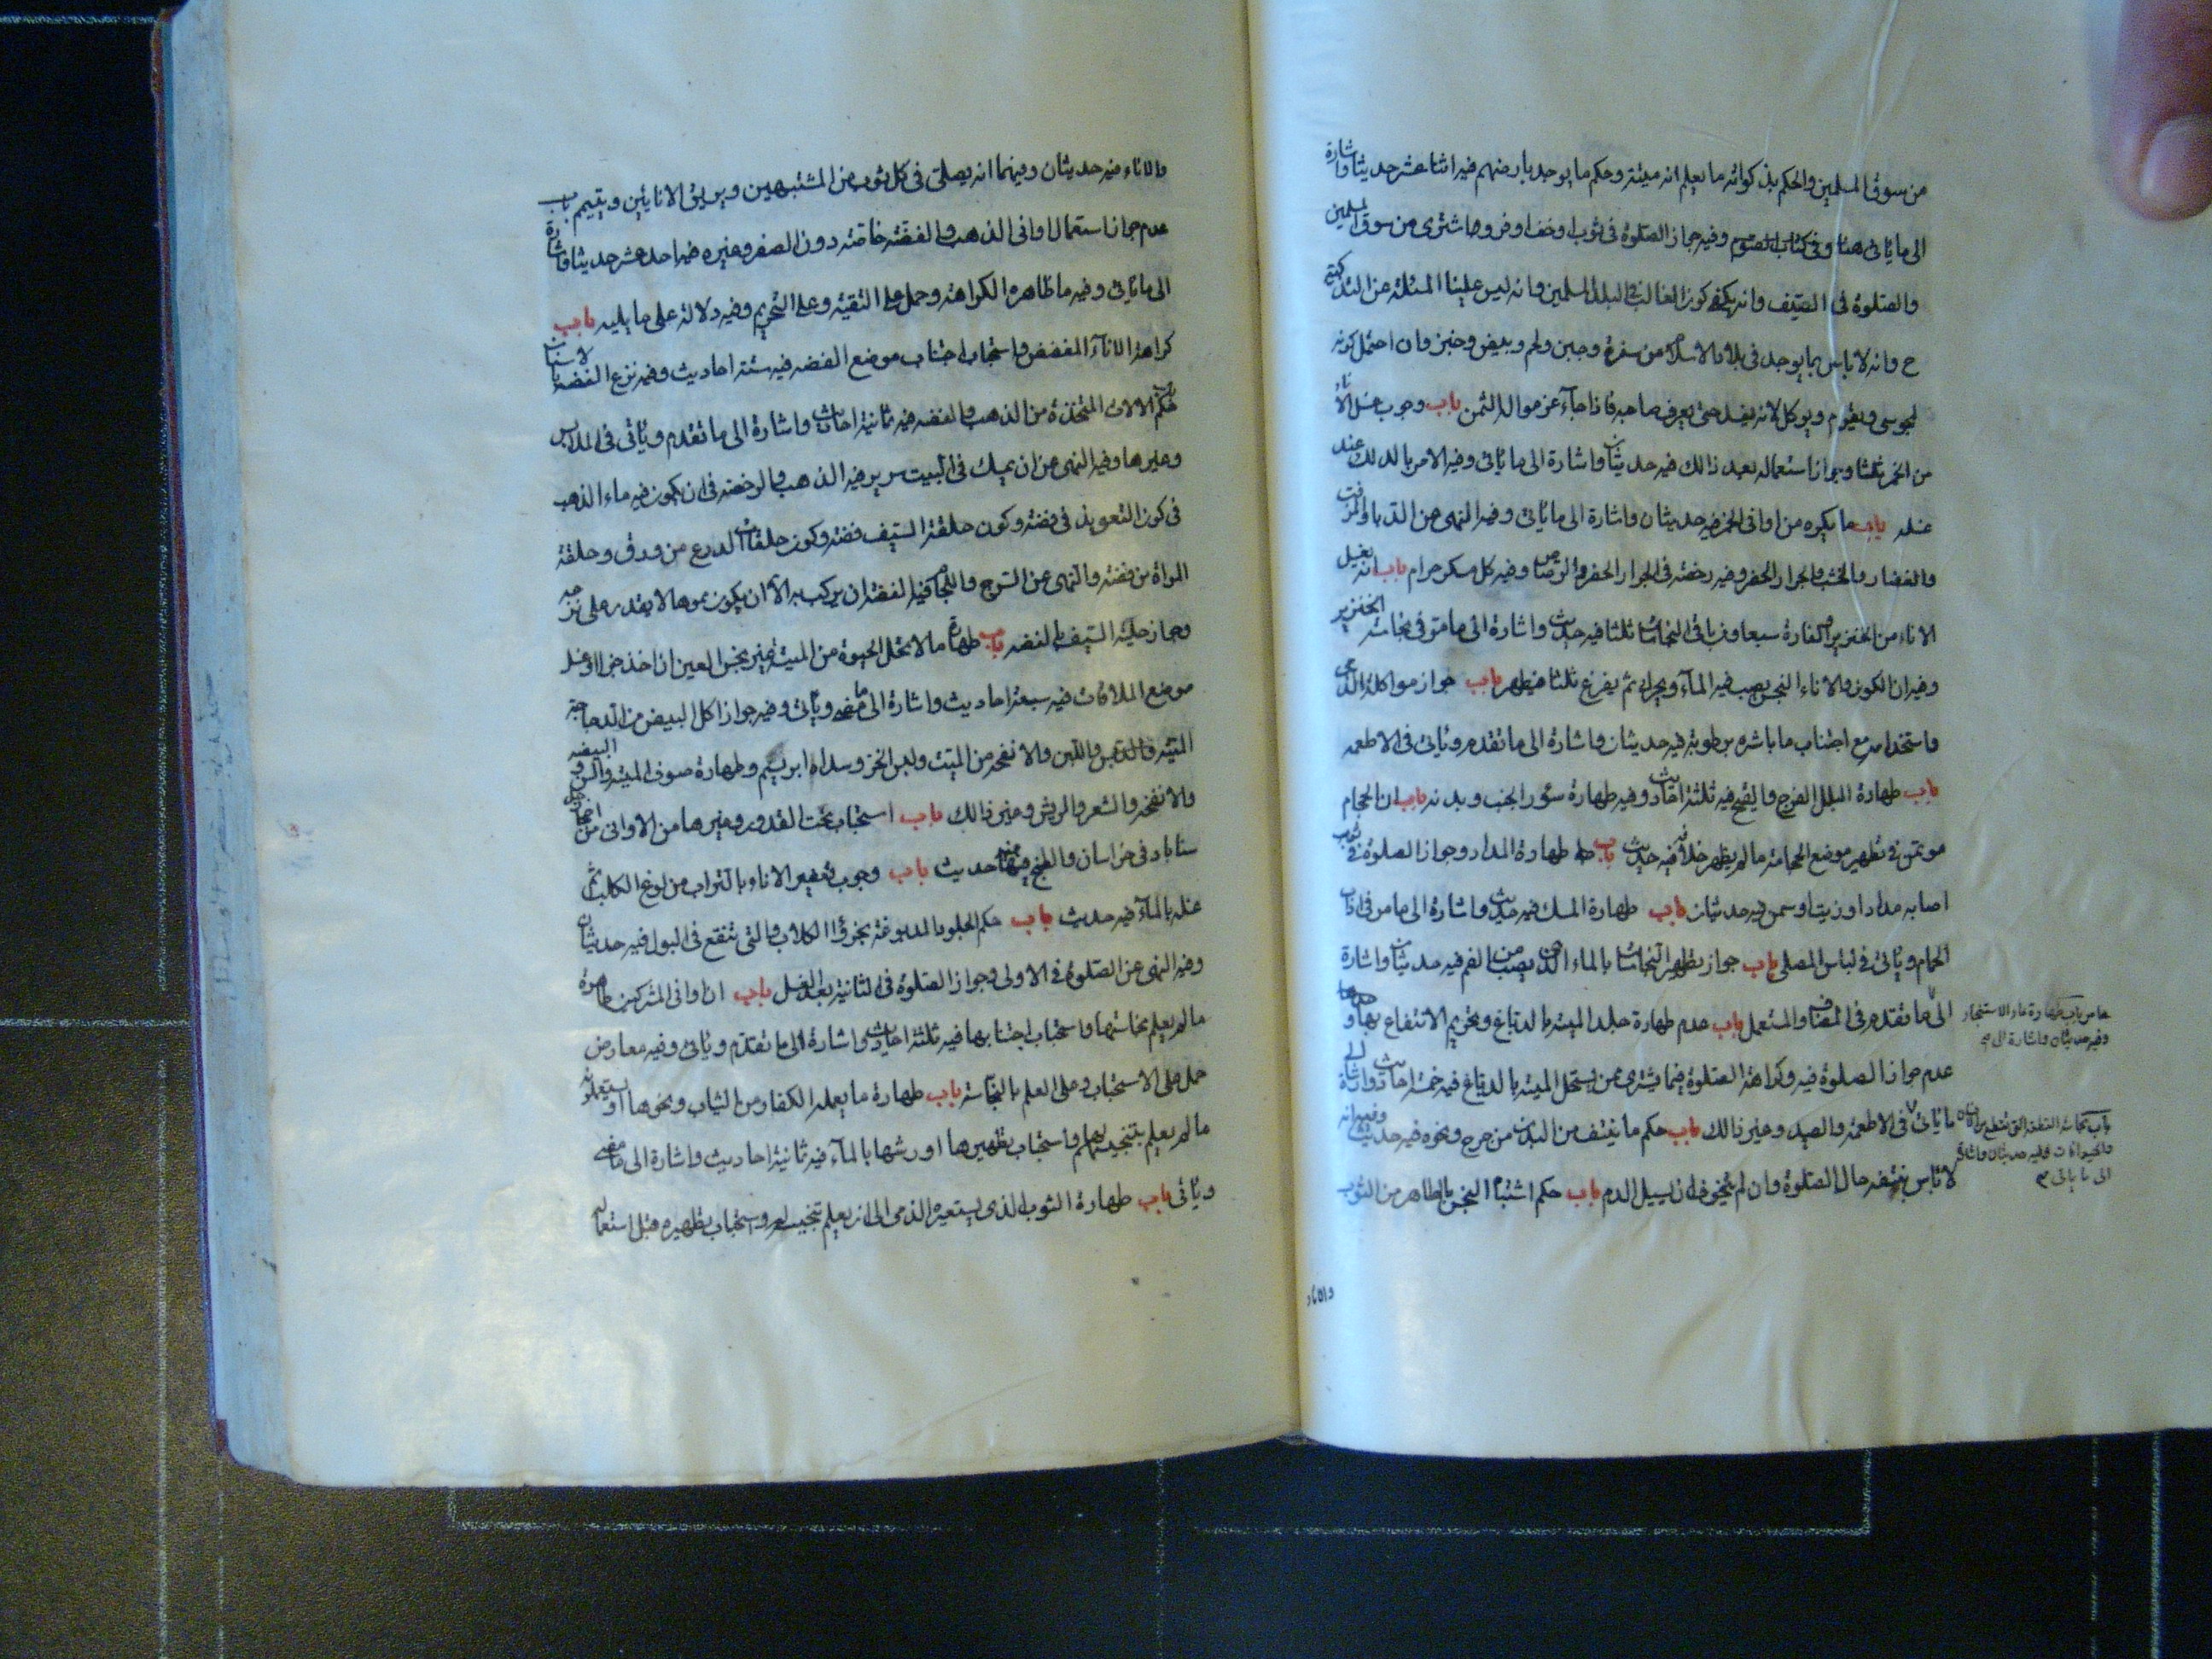 من سوق المسلمين والحكم بذكوته ما يعلم انه ميتة وحكم ما يوجد بارضهم فيه اثنا عشر حديثا واشارة
الى ما ياتى هنا وفى كتاب الصوم وفيه جواز الصلوة فى ثوب او خف او فرو مما شترى من سوق المسلمين
والصلوة فى الصيف وانه يكفى كون الغالب فى البلد المسلمين وانه ليس علينا المسئلة عن التذكية
ح وانه لا باس بما يوجد فى بلاد الاسلام من سفرة وجبن ولحم وبيض وخبز وان احتمل كونه
لمجوسى ويقوم ويوكل لانه يفسد حتى يعرف صاحبه فاذا جاء غرموا له الثمن باب وجوب غسل الاناء
من الخمر ثلثا وجواز استعماله بعد ذالك فيه حديثان واشارة الى ما ياتى وفيه الامر بالدلك عند
غسله باب ما يكره من اوانى الخمر فيه حديثان واشارة الى ما ياتى وفيه النهى من الدبا والمزفت
والغضار والخشب والجرار الخضر وفيه رخصة فى الجرار الخضر والرصاص وفيه كل مسكر حرام باب انه يغسل
الاناء من الخنزير والفارة سبعا ومن باقى النجاسات ثلثا فيه حديث واشارة الى ما مر فى نجاسة الخنزير
وفيه ان الكوز والاناء النجس يصب فيه الماء ويحرك ثم يفرغ ثلثا فيطهر باب جواز مواكلة الذمى
واستخدامه مع اجتناب ما باشره برطوبة فيه حديثان واشارة الى ما تقدم وياتى فى الاطعمه
باب طهارة البلل الفرج والقيح فيه ثلثة احاديث وفيه طهارة سؤر الجنب وبدنه باب ان الحجام
موتمن فى تطهير موضع الحجامة ما لم يظهر خلافه فيه حديث باب طهارة المداد وجواز الصلوة فى ثوب
اصابه مداد او زيت او سمن فيه حديثان باب طهارة المسك فيه حديث واشارة الى ما مر فى اداب
الحمام وياتى فى لباس المصلى باب جواز تطهير النجاسات بالماء الذى يصب من الفم فيه حديثان واشارة
الى ما تقدم فى المضاف والمستعمل باب عدم طهارة جلد الميتة بالدباغ وتحريم الانتفاع بها و
عدم جواز الصلوة فيه وكراهة الصلوة فيما يشترى ممن يستحل الميتة بالدباغ فيه خمسة احاديث واشارة الى
ما ياتى فى الاطعمة والصيد وغير ذالك باب حكم ما ينتف من البدن من جرح ونحوه فيه حديث وفيه انه
لا باس بنتفه حال الصلوة وان لم يتخوف ان يسيل الدم باب حكم اشتباه النجس بالطاهر من الثوب
باب طهارة ماء الاستنجاء
وفيه حديثان واشارة الى
باب نجاسة القطعة التى تقطع من الانسان
والحيوانات فيه حديثان واشارة
الى ما ياتى
والاناء
والاناء فيه حديثان وفيهما انه يصلى فى كل ثوب من المشتبهين ويريق الانائين ويتيمم باب
عدم جواز استعمال اوانى الذهب والفضة خاصة دون الصفر وغيره فيه احد عشر حديثا واشارة
الى ما ياتى وفيه ما ظاهره الكراهة وحمل على التقية وعلى التحريم وفيه دلالة على ما يليه باب
كراهة الاناء المفضض واستحباب اجتناب موضع الفضه فيه ستة احاديث وفيه نزع الفضة بالاسنان
باب حكم الالات المتخذة من الذهب والفضه فيه ثمانية احاديث واشارة الى ما تقدم وياتى فى الملابس
وغيرها وفيه النهى من ان يمسك فى البيت سرير فيه الذهب والرخصة فى ان يكون فيه ماء الذهب
فى كون التعويذ فى فضة وكون حلقة السيف فضة وكون حلقات الدرع من ورق وحلقة
المراة من فضة والنهى عن السرج واللجام فيه الفضة ان يركب به الا ان يكون مموها لا يقدر على نزعه
وجواز حلية السيف بالفضه باب طهارة ما لا تحله الحيوة من الميتة غير نجس العين ان اخذ جزا او غسل
موضع الملاقات فيه سبعة احاديث واشارة الى ما مضى وياتى وفيه جواز اكل البيض من الدجاجة
الميتة واللبن والانفحة من الميتة ولبس الخز وسداه ابريسم وطهارة صوف الميتة والسن والبيضه
والانفحة والشعر والريش وغير ذالك باب استحباب نحت القدور وغيرها من الاوانى من احجار جبل
سناباد فى خراسان والطبخ فيها فيه حديث باب وجوب تعفير الاناء بالتراب من لوغ الكلب ثم
غسله بالماء فيه حديث باب حكم الجلود المدبوغة بخرؤ الكلاب والتى تنقع فى البول فيه حديثان
وفيه النهى عن الصلوة فى الاولى وجواز الصلوة فى الثانية بعد الغسل باب ان اوانى المشركين طاهرة
ما لم يعلم نجاستها واستحباب اجتنابها فيه ثلثة احاديث واشارة الى ما تقدم وياتى وفيه معارض
حمل على الاستحباب وعلى العلم بالنجاسة باب طهارة ما يعمله الكفار من الثياب ونحوها او يستعملونه
ما لم يعلم بتنجيسهم واستحباب تطهيرها او رشها بالماء فيه ثمانية احاديث واشارة الى ما مضى
وياتى باب طهارة الثوب الذى يستعيره الذمى الى ان يعلم تنجيسه واستحباب تطهيره قبل استعماله